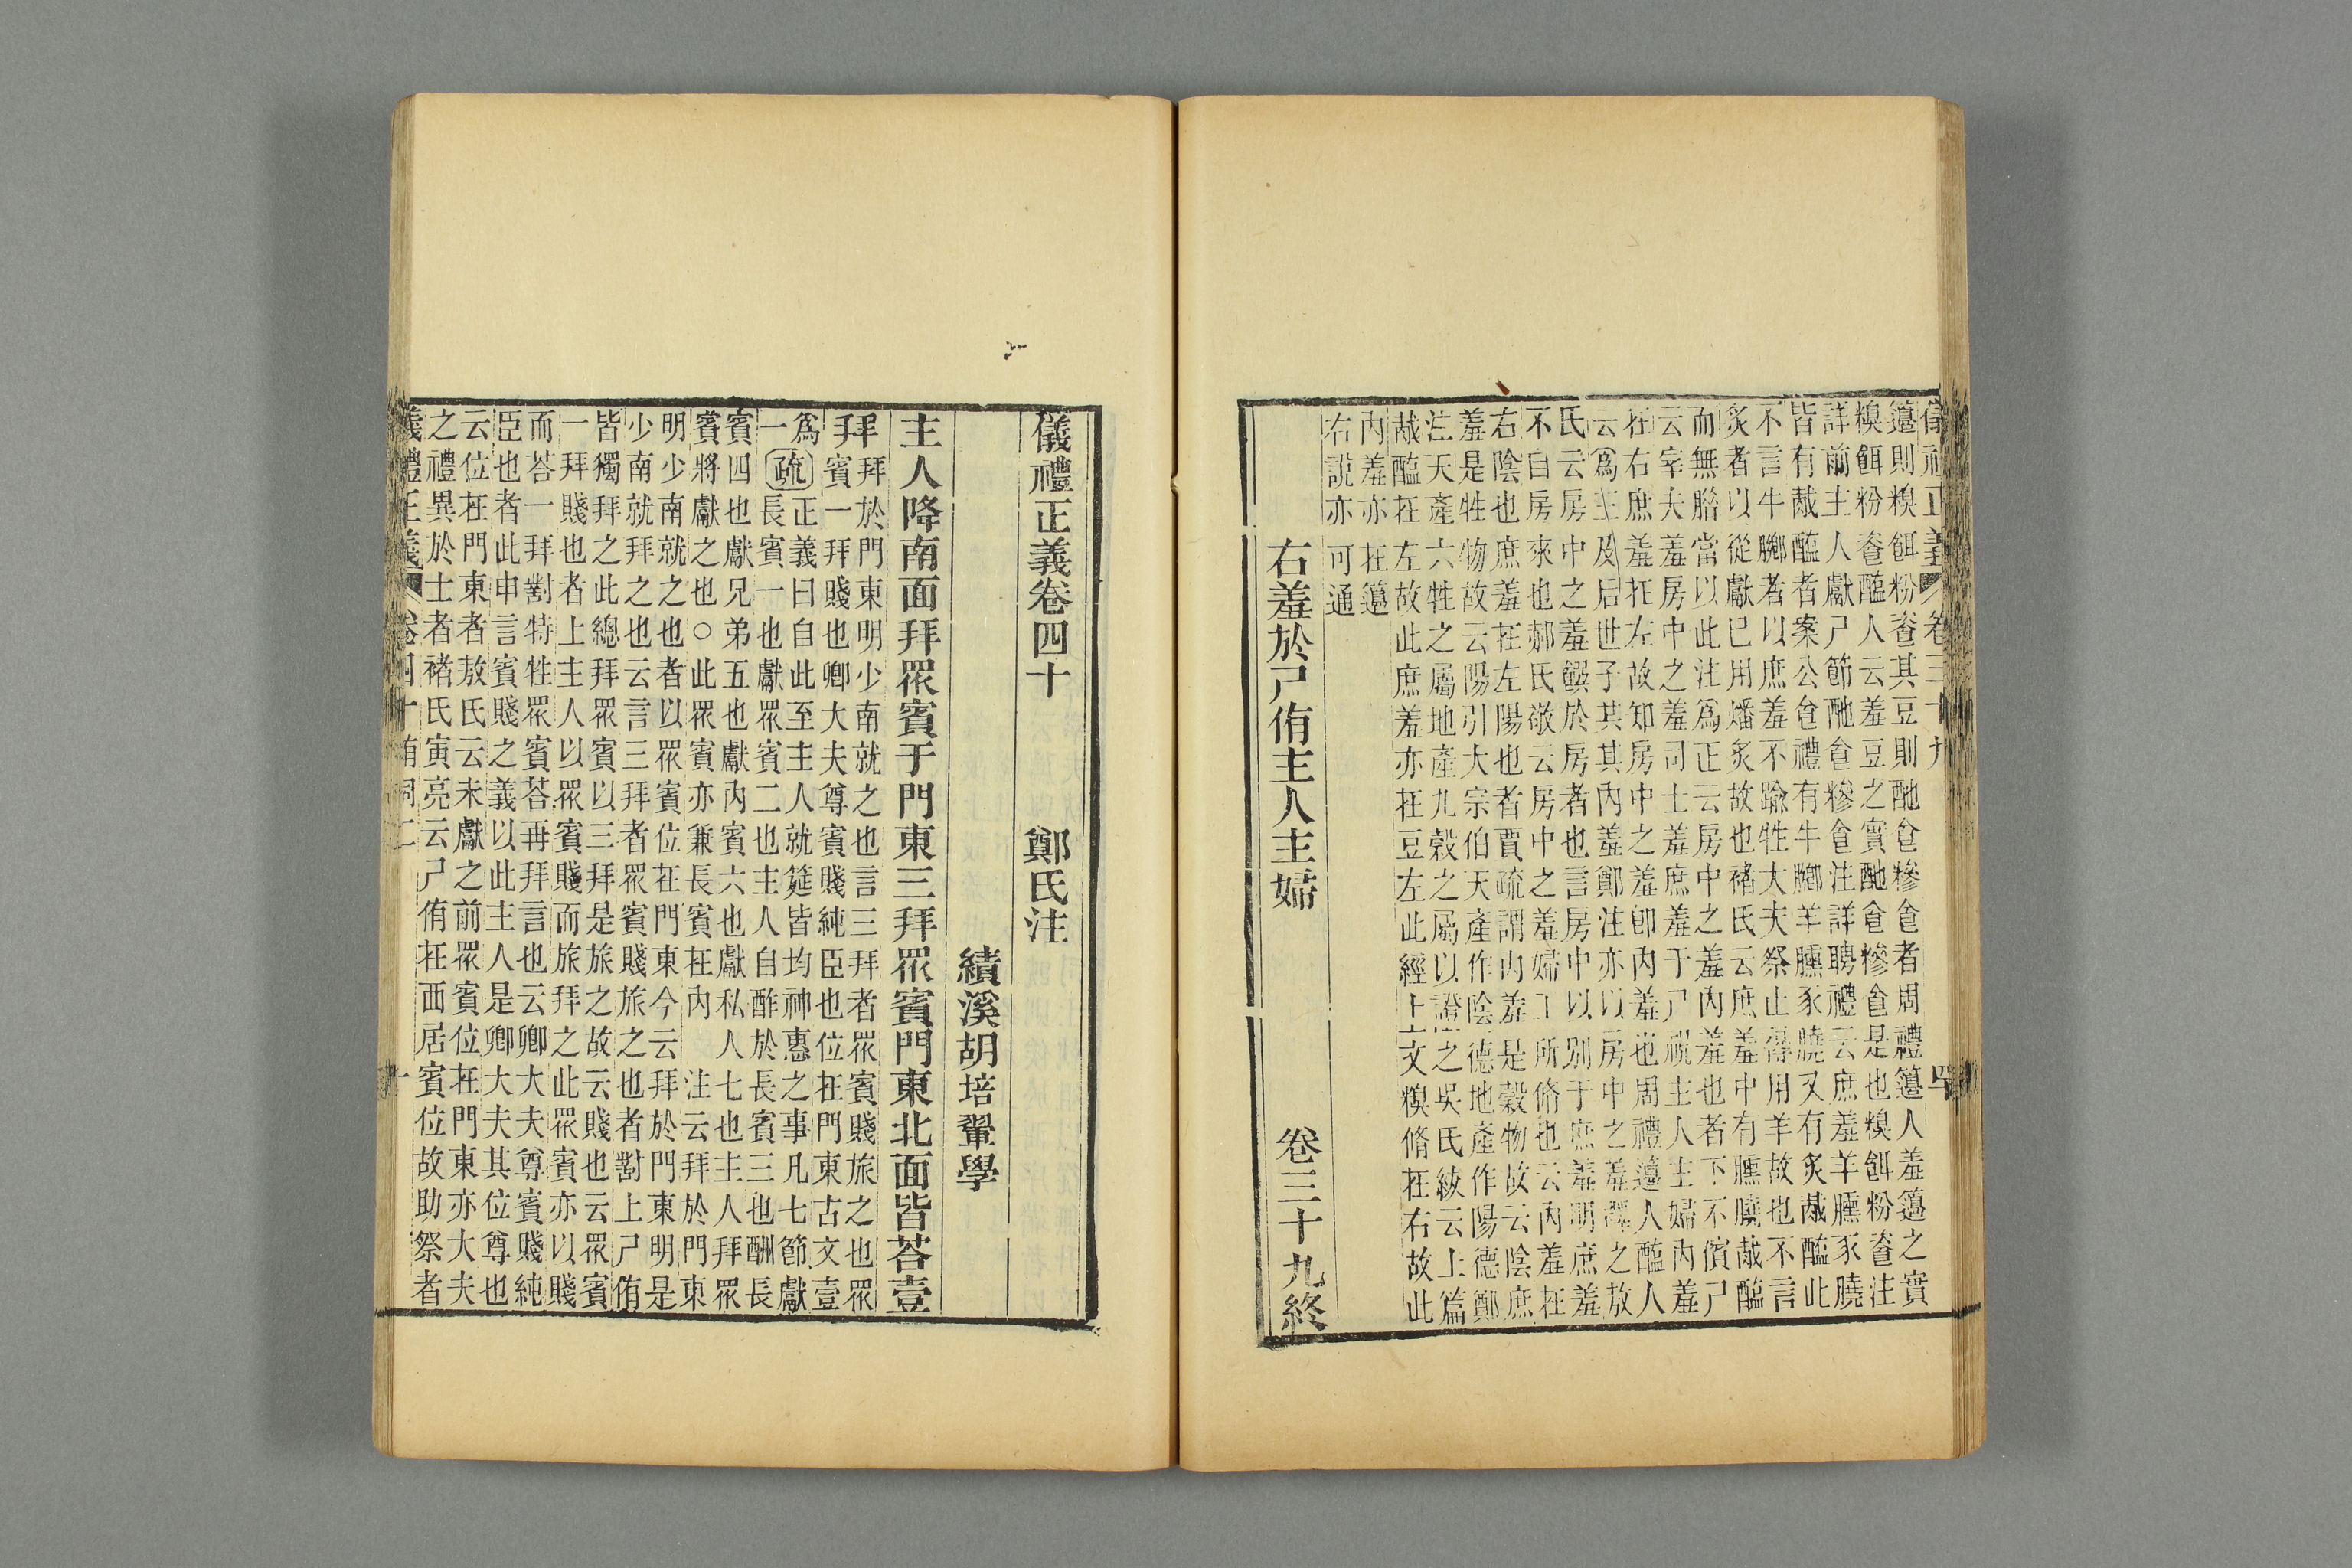 儀禮正義 卷三十九
籩則糗餌粉餈其豆則酏食糝食者周禮籩人羞籩之實
糗餌粉餈醢人云羞豆之實酏食糝食是也糗餌粉餈注
詳前主人獻尸節酏食糝食注詳聘禮云庶羞羊臐豕膮
皆有胾醢者案公食禮有牛膷羊臐豕膮又有炙胾醢此
不言牛膷者以庶羞不踰牲大夫祭止得用羊故也不言
炙者以從獻已用燔炙故也褚氏云庶羞中有臐膮胾醢
而無膾當以此注爲正云房中之羞內羞也者下不儐尸
云宰夫羞房中之羞司士羞庶羞于尸祝主人主婦內羞
在右庶羞在左故知房中之羞卽內羞也周禮籩人醢人
云爲王及后世子共其內羞鄭注亦以房中之羞釋之敖
氏云房中之羞饌於房者也言房中以別于庶羞明庶羞
不自房來也郝氏敬云房中之羞婦工所脩也云內羞在
右陰也庶羞在左陽也者賈疏謂內羞是穀物故云陰庶
羞是牲物故云陽引大宗伯天產作陰德地產作陽德鄭
注天產六牲之屬地產九穀之屬以證之吳氏紱云上篇
胾醢在左故此庶羞亦在豆左此經上文糗脩在右故此
內羞亦在籩
右說亦可通
右羞於尸侑主人主婦 卷三十九終
儀禮正義卷四十 鄭氏注
績溪胡培翬學
主人降南面拜眾賓于門東三拜眾賓門東北面皆荅壹
拜
拜於門東明少南就之也言三拜者眾賓賤旅之也眾
賓一拜賤也卿大夫尊賓賤純臣也位在門東古文壹
爲
一
疏
正義曰自此至主人就筵皆均神惠之事凡七節獻
長賓一也獻眾賓二也主人自酢於長賓三也酬長
賓四也獻兄弟五也獻內賓六也獻私人七也主人拜眾
賓將獻之也○此眾賓亦兼長賓在內 注云拜於門東
明少南就之也者以眾賓位在門東今云拜於門東明是
少南就拜之也云言三拜者眾賓賤旅之也者對上尸侑
皆獨拜之此總拜眾賓以三拜是旅之故云賤也云眾賓
一拜賤也者上主人以眾賓賤而旅拜之此眾賓亦以賤
而荅一拜對特牲眾賓荅再拜言也云卿大夫尊賓賤純
臣也者此申言賓賤之義以此主人是卿大夫其位尊也
云位在門東者敖氏云未獻之前眾賓位在門東亦大夫
之禮異於士者褚氏寅亮云尸侑在西居賓位故助祭者
義禮正義 卷四十 有司二 一